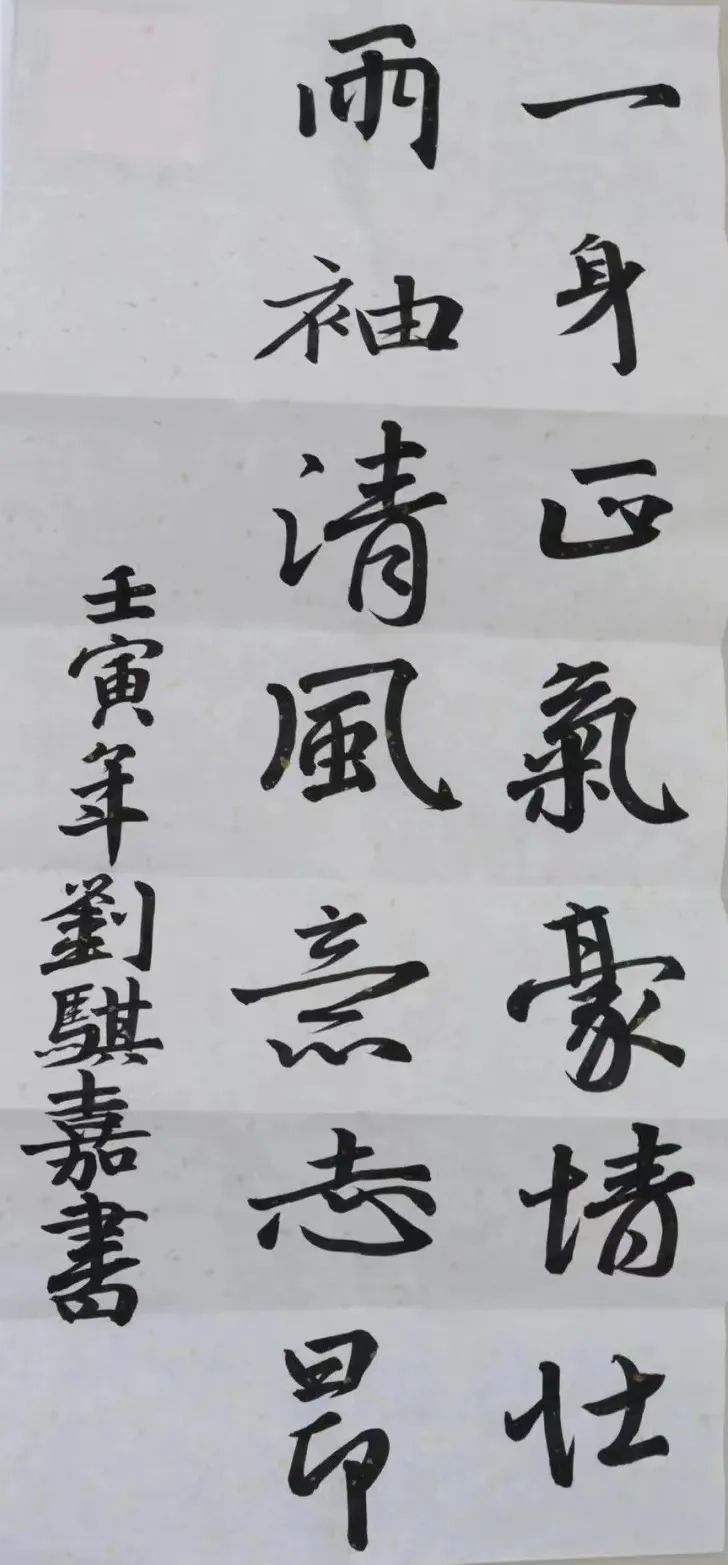 一身正氣豪情壯
兩袖清風意志昂
壬寅年劉騏嘉書